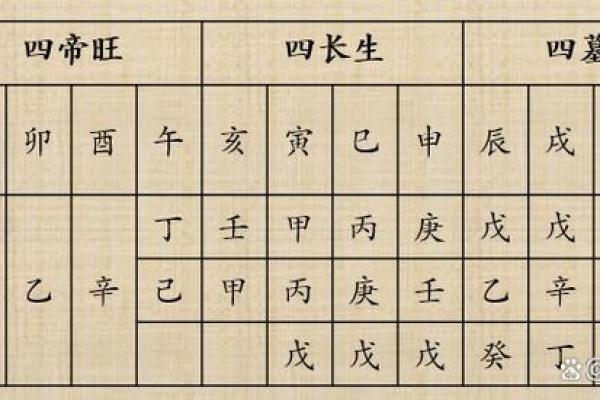 四帝旺 四长生 四墓
卯 酉 午 亥 寅 巳 申 辰 戌
丁 壬 甲 丙 庚 戊 戊
乙 辛 己 甲 丙 庚 壬 乙 辛
戊 戊 戊 癸 丁